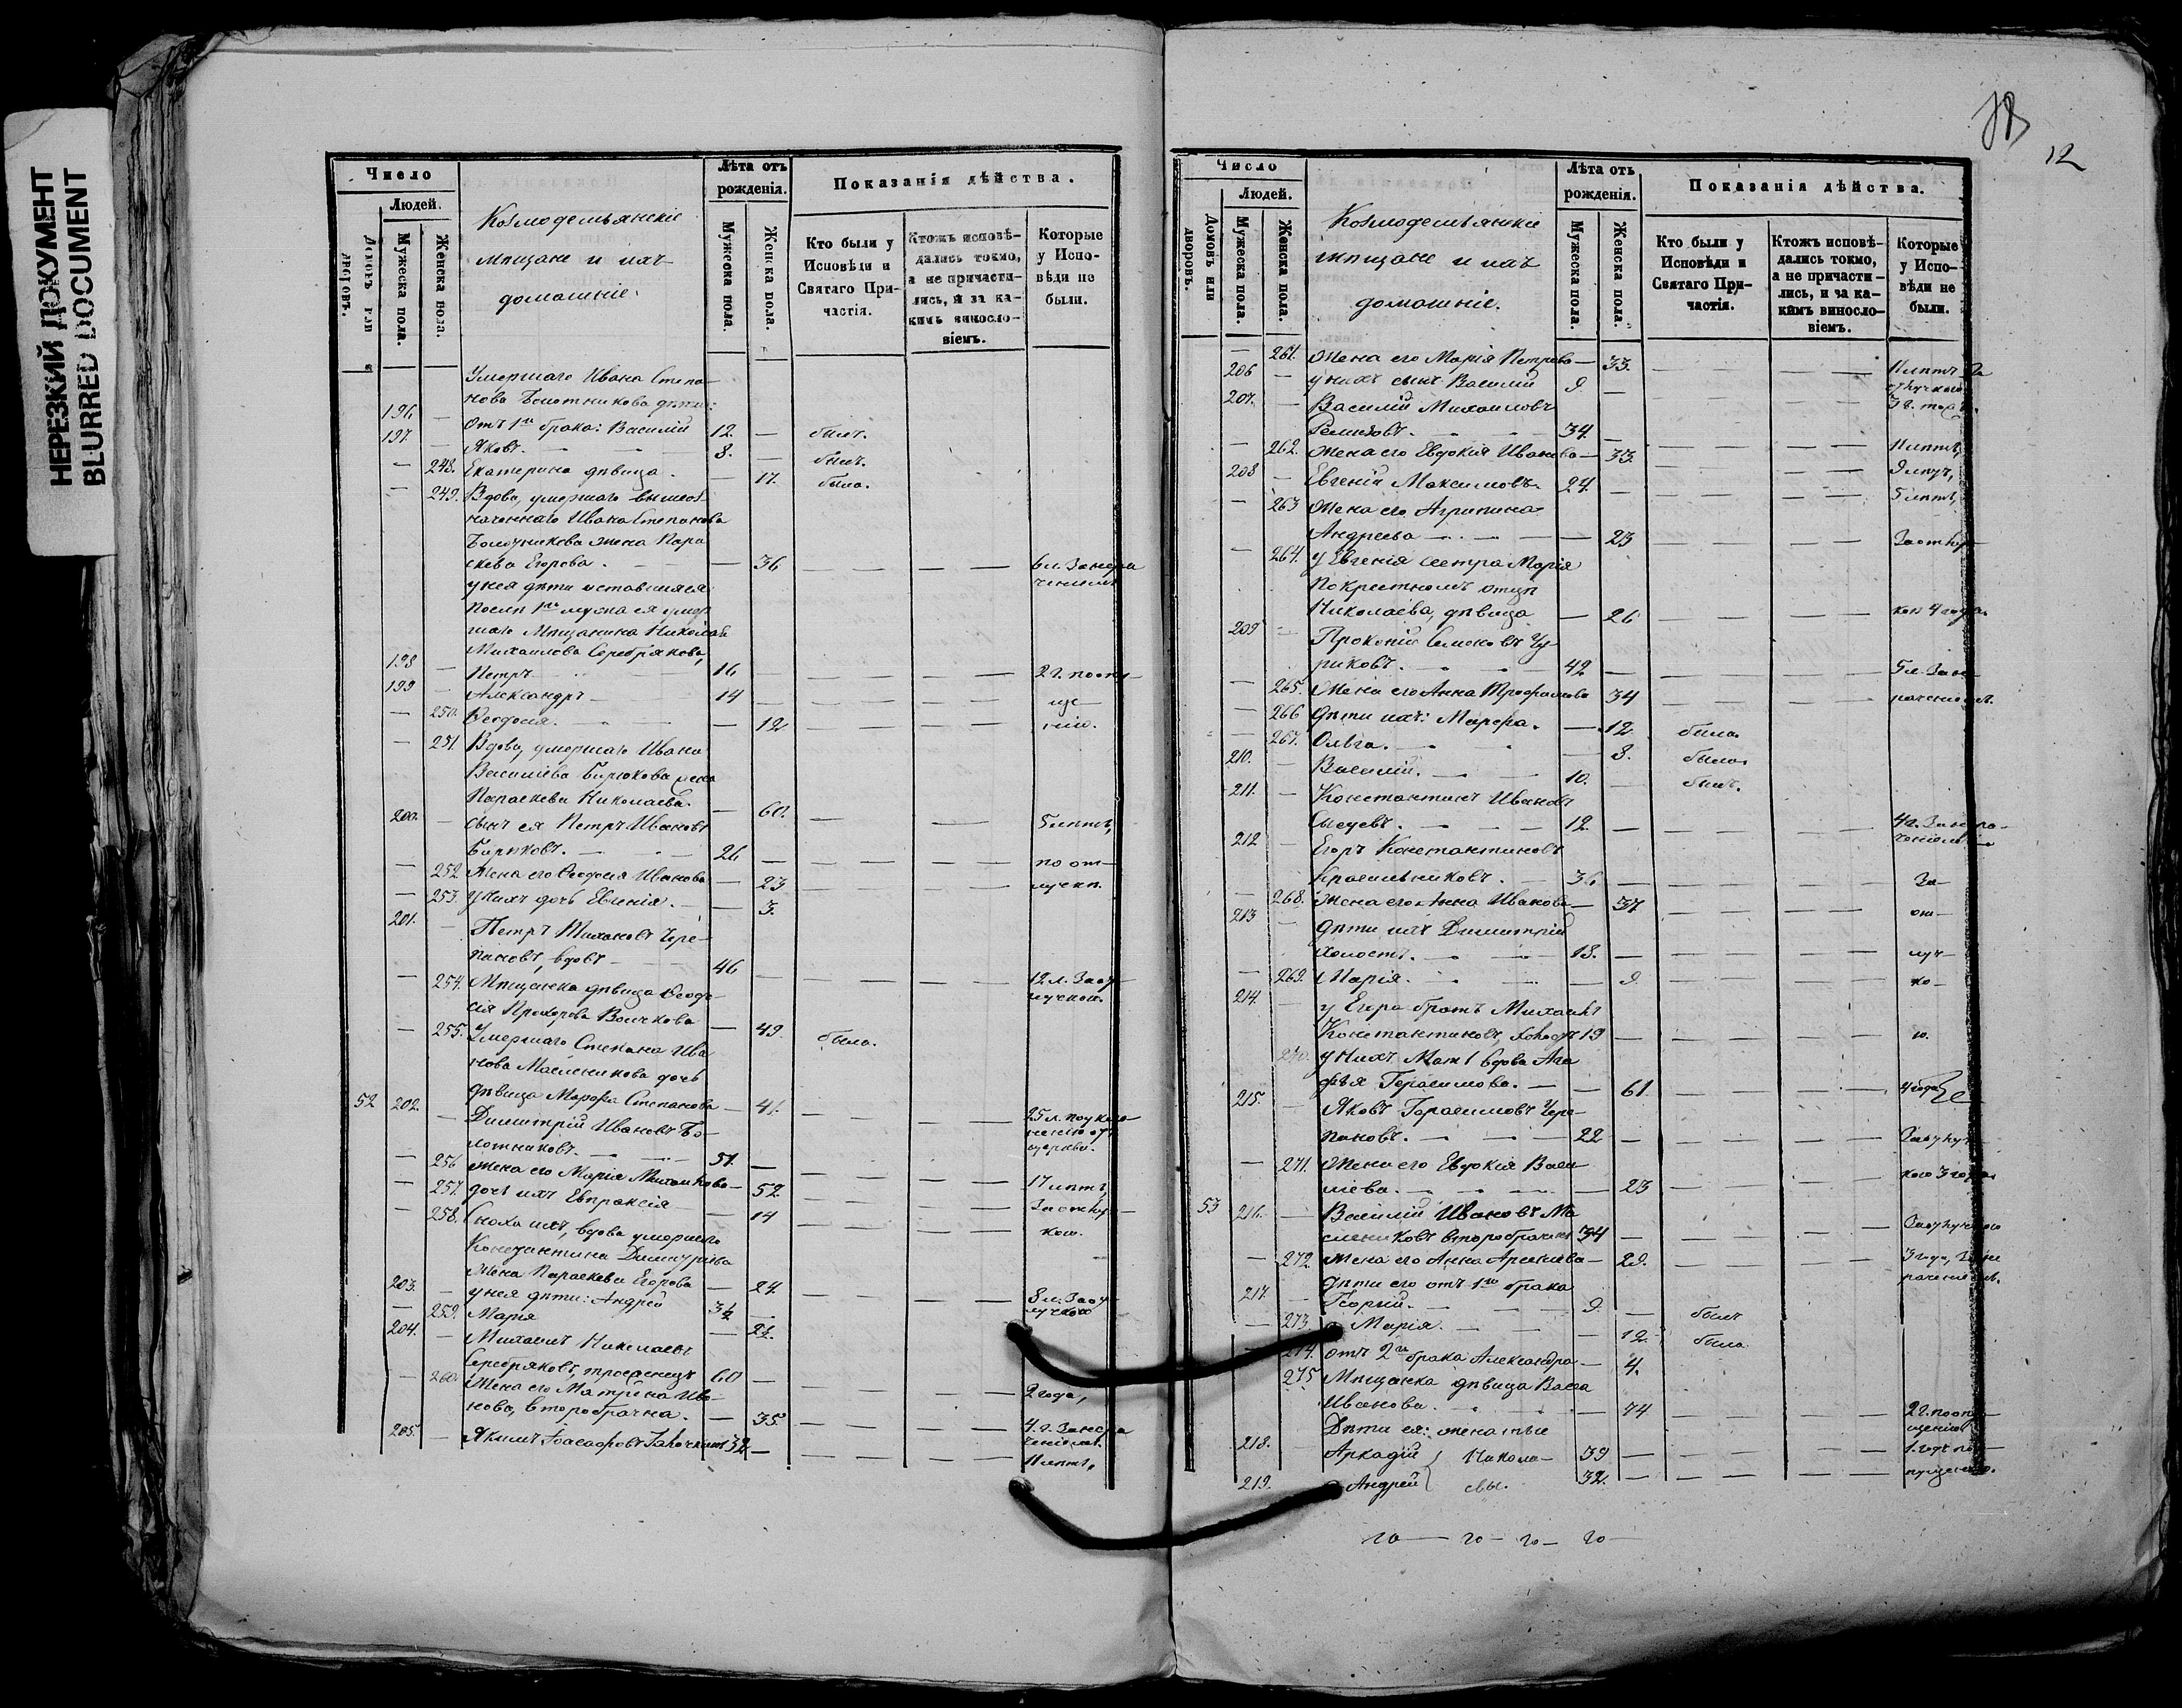 НЕРЕЗКИЙ ДОКУМЕНТ
BLURRED DOCUMENT
Число
Людей.
Мужеска пола.
Женска пола.
Козмодемьянскіе
мѣщане и ихъ
домашніе.
Лѣта отъ
рожденія.
Мужеска пола.
Женска пола.
Показанія дѣйства.
Кто были у
Исповѣди и
Святаго При-
частія.
Ктожъ исповѣ-
дались токмо,
а не причасти-
лись, и за ка-
кимъ винословіемъ.
Которые
у Испо-
вѣди не
были.
Умершаго Ивана Степа-
нова Болотникова дѣти:
196. — Отъ 1го брака: Василій 12. — былъ.
197. — Яковъ. 8. — былъ.
— 248. Екатерина дѣвица. — 17. была.
— 249. Вдова, умершаго вышеоз-
наченнаго Ивана Степанова
Болотникова жена Пара
скева Егорова. — 36 — — 6 л. за нера
чениемъ
у нея дѣти оставшіяся
послѣ 1го мужа ея умер
шаго мѣщанина Николая
Михаилова Серебрякова,
198 — Петръ 16 — — — 2 г. по опу
199 — Александръ 14 — — — ще
— 250. Ѳеодосія. — 12 — — — нію.
— 251 Вдова, умершаго Ивана
Василіева Бирюкова жена
Параскева Николаева. — 60. — — 5 лѣтъ,
200. — сынъ ея Петръ Ивановъ
Бирюковъ. 26 — — — по от-
— 252 Жена его Ѳеодосія Иванова — 23 — — лучкѣ.
— 253. у нихъ дочь Евгенія. — 3.
201. — Петръ Тихоновъ Чере-
пановъ, вдовъ 46 — — — 12 л. за от
лучкою.
— 254. Мѣщанка дѣвица Ѳеодо-
сія Прохорова Волчкова — 49 была.
— 255. Умершаго Степана Ива
нова Масленикова дочь
дѣвица Марѳа Степанова — 41. — — 25 л. по укло
ненію отъ
церкви.
52 202. — Димитрій Ивановъ Бо-
лотниковъ. 51. — — — 17 лѣтъ,
— 256 Жена его Марія Михаилова — 52 — — за отлуч-
— 257. дочь ихъ Евпраксія — 14 — — кою.
— 258. Сноха ихъ, вдова умершаго
Константина Димитріева
жена Параскева Егорова — 24. — — 8 л. за от
лучкою
203. — у нея дѣти: Андрей 3½ —
— 259. Марія — 2½.
204. — Михаилъ Николаевъ
Серебряковъ, 60 — — — 2 года,
— 260. Жена его Матрена Ива-
нова, второбрачна. — 35. — — 4 г. за нера
ченіемъ.
205. — Якимъ Іоасафовъ 32 — — — 11 лѣтъ,
12
Число
Домовъ или
дворовъ.
Людей.
Мужеска пола.
Женска пола.
Козмодемьянскіе
мѣщане и ихъ
домашніе.
Лѣта отъ
рожденія.
Мужеска пола.
Женска пола.
Показанія дѣйства.
Кто были у
Исповѣди и
Святаго При-
частія.
Ктожъ исповѣ-
дались токмо,
а не причасти-
лись, и за ка-
кимъ винословіемъ.
Которые
у Испо-
вѣди не
были.
— 261. Жена его Марія Петрова — 33. — — 11 лѣтъ за
206 — у нихъ сынъ Василій 9 —
207. — Василій Михаиловъ
Ремизовъ. 34. — — — 11 лѣтъ,
— 262. Жена его Евдокія Иванова — 33. — — 9 лѣтъ,
208 — Евгеній Максимовъ 24. — — — 5 лѣтъ,
— 263 Жена его Агрипина
Андреева — 23 — — за отлуч-
— 264. у Евгенія сестра Марія
по крестномъ отцѣ
Николаева, дѣвица — 26 — — кою 4 года.
209 — Прокопій Семеновъ Чу-
риковъ. 42 — — — 5 л. за не-
— 265. Жена его Анна Трофимова 34 — — раченіемъ.
— 266 дѣти ихъ: Марѳа. — 12 была.
— 267. Ольга. — 8. была.
210. — Василій. 10. — былъ.
211. — Константинъ Ивановъ
Сысуевъ. 12. — — — 4 г. за нера-
ченіемъ
212 — Егоръ Константиновъ
Красильниковъ. 36 — — — за
— 268. Жена его Анна Иванова — 37 — — от-
213 — дѣти ихъ Димитрій
холостъ. 18. — — — луч-
— 269. Марія. — 9 — ко-
214. — у Егора братъ Михаилъ
Константиновъ, холостъ 19 — — — ю.
270. у нихъ мать вдова Ага
фья Герасимова. — 61. — — 4 года
215. — Яковъ Герасимовъ Чере-
пановъ. 22 — — — за отлуч-
— 271. Жена его Евдокія Васи
ліева. — 23 — — кою 3 года.
53 216. — Василій Ивановъ Ма
слениковъ второбраченъ 34 — — — за отлучкою
— 272 Жена его Анна Арсеніева — 29. — 3 года, за не
раченіемъ.
217. дѣти его отъ 1го брака
Георгій. 9. — былъ
— 273 Марія. — 12. была
— 274. отъ 2го брака Александра — 4.
275 Мѣщанка дѣвица Васса
Иванова. — 74 — — 2 г. по опу-
щенію
Дѣти ея: женатые
218. Аркадій } Никола- 39 — — 1 годъ по о-
219. Андрей } евы. 32. — — — пущенію.